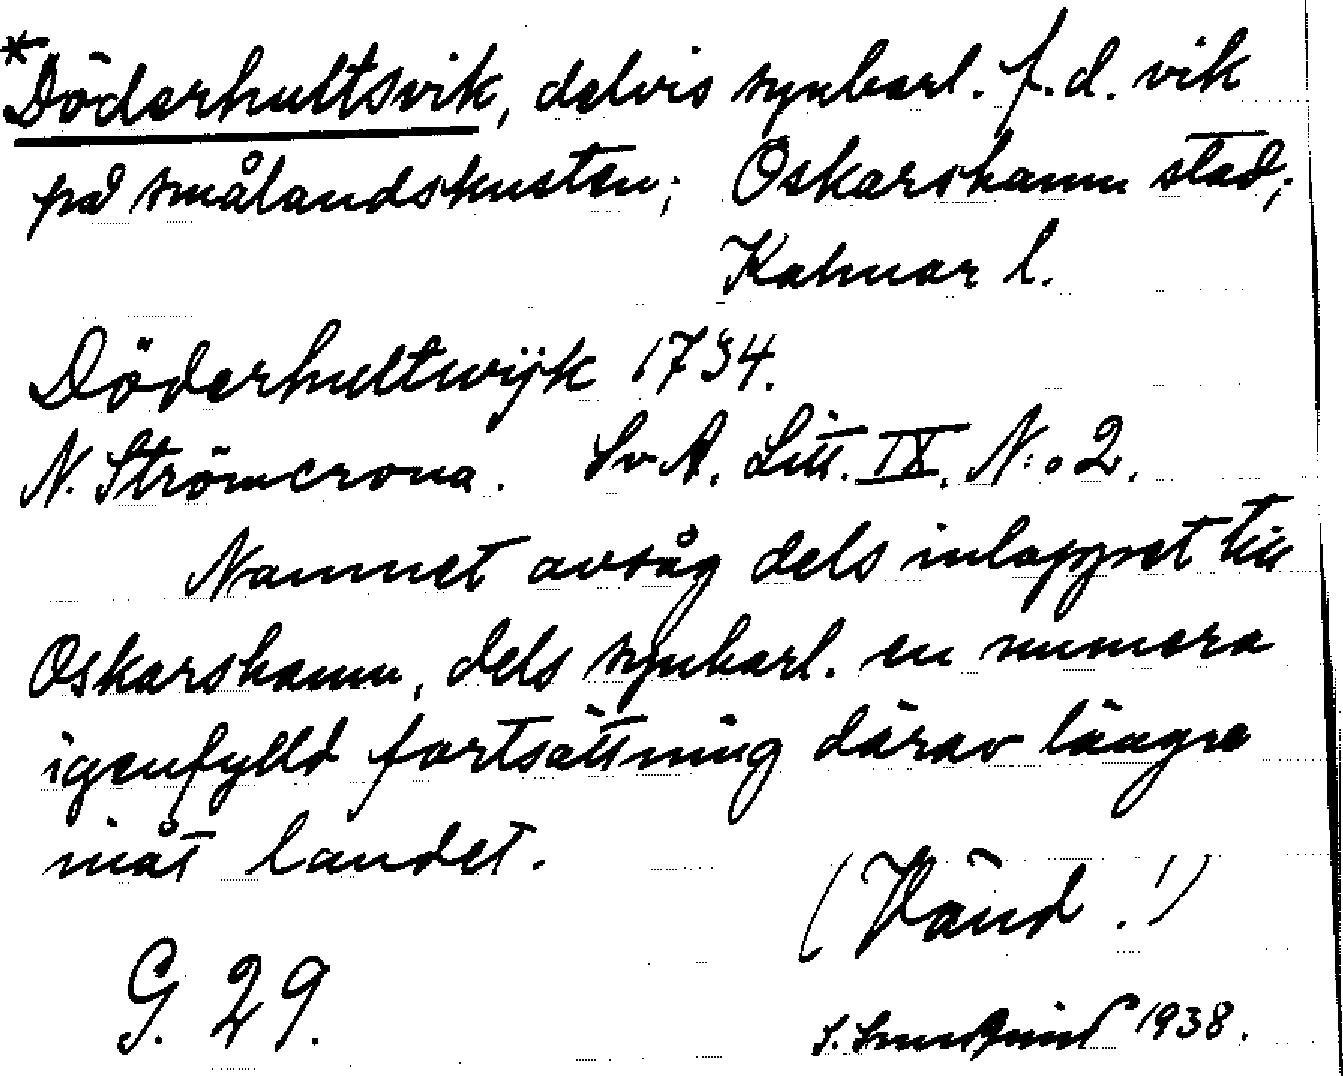 *Döderhultsvik, delvis synbarl. f.d. vik
på smålandskusten; Oskarshamn stad;
Kalmar l.
Döderhultwijk 1734.
N. Strömcrona. SvA. Litt. IX. N:o 2.
Namnet avsåg dels inloppet till
Oskarshamn, dels synbarl. en numera
igenfylld fortsättning därav längre
inåt landet.
(Vänd!)
G. 29.
S. 1938.